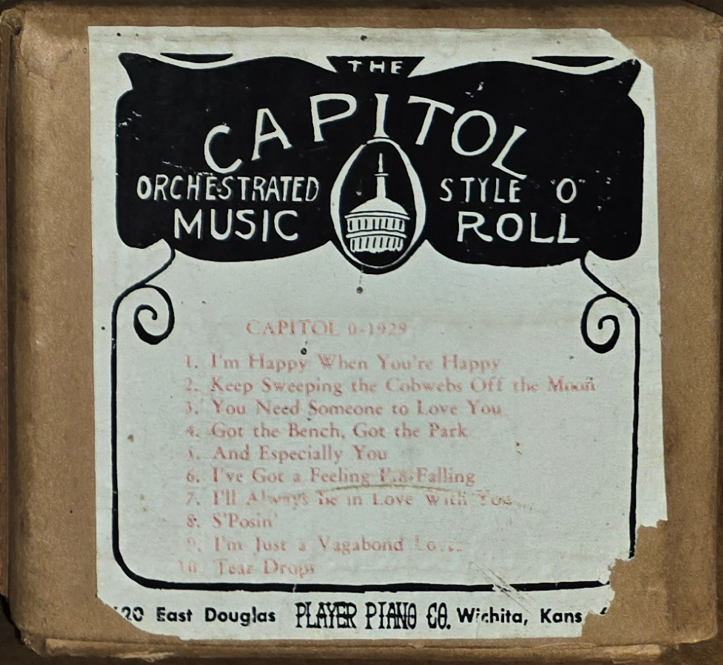 THE
CAPITOL
ORCHESTRATED STYLE "O"
MUSIC ROLL
CAPITOL 0-1929
1. I'm Happy When You're Happy
2. Keep Sweeping the Cobwebs Off the Moon
3. You Need Someone to Love You
4. Got the Bench, Got the Park
5. And Especially You
6. I've Got a Feeling I'm Falling
7. I'll Always be in Love With You
8. S'Posin'
9. I'm Just a Vagabond
10. Tear Drops
20 East Douglas PLAYER PIANO CO. Wichita, Kans